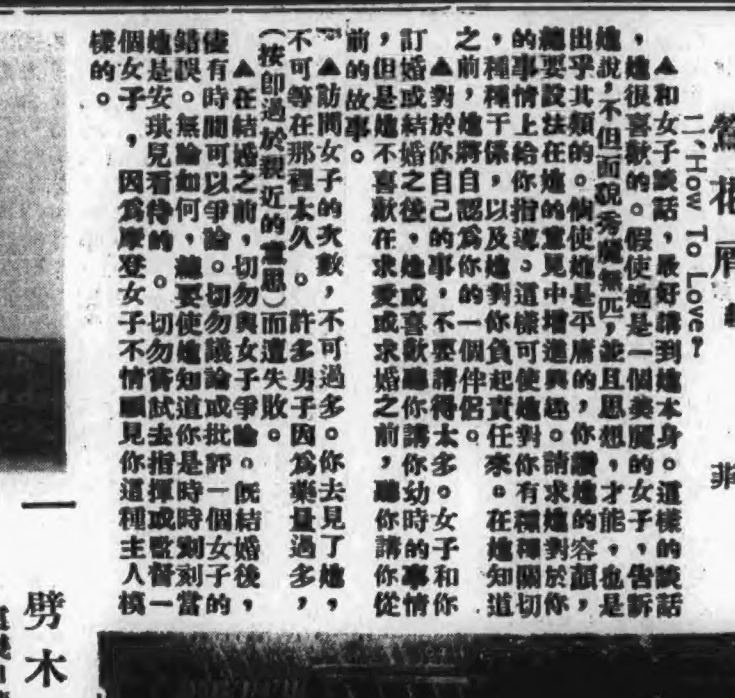 鶯花屑
非
二、How To Love?
▲和女子談話，最好講到她本身。這樣的談話
，她很喜歡的。假使她是一個美麗的女子，告訴
她說，不但面貌秀麗無匹，並且思想，才能，也是
出乎其類的。倘使她是平庸的，你讚她的容顏，
總要設法在她的意見中增進興趣。請求她對於你，
的事情上給你指導。這樣可使她對你有種種關切
，種種干係，以及她對你負起責任來。在她知道
之前，她將自認爲你的一個伴侶。
▲對於你自己的事，不要講得太多。女子和你
訂婚或結婚之後，她或喜歡聽你講你幼時的事情
，但是她不喜歡在求愛或求婚之前，聽你講你從
前的故事。
▲訪問女子的次數，不可過多。你去見了她，
不可等在那裡太久。許多男子因爲藥量過多，
(按即過於親近的意思)而遭失敗。
▲在結婚之前，切勿與女子爭論。旣結婚後，
儘有時間可以爭論。切勿議論或批評一個女子的
錯誤。無論如何，總要使她知道你是時時刻刻當
她是安琪兒看待的。切勿嘗試去指揮或監督一
個女子，因爲摩登女子不情願見你這種主人模
樣的。
一
劈木